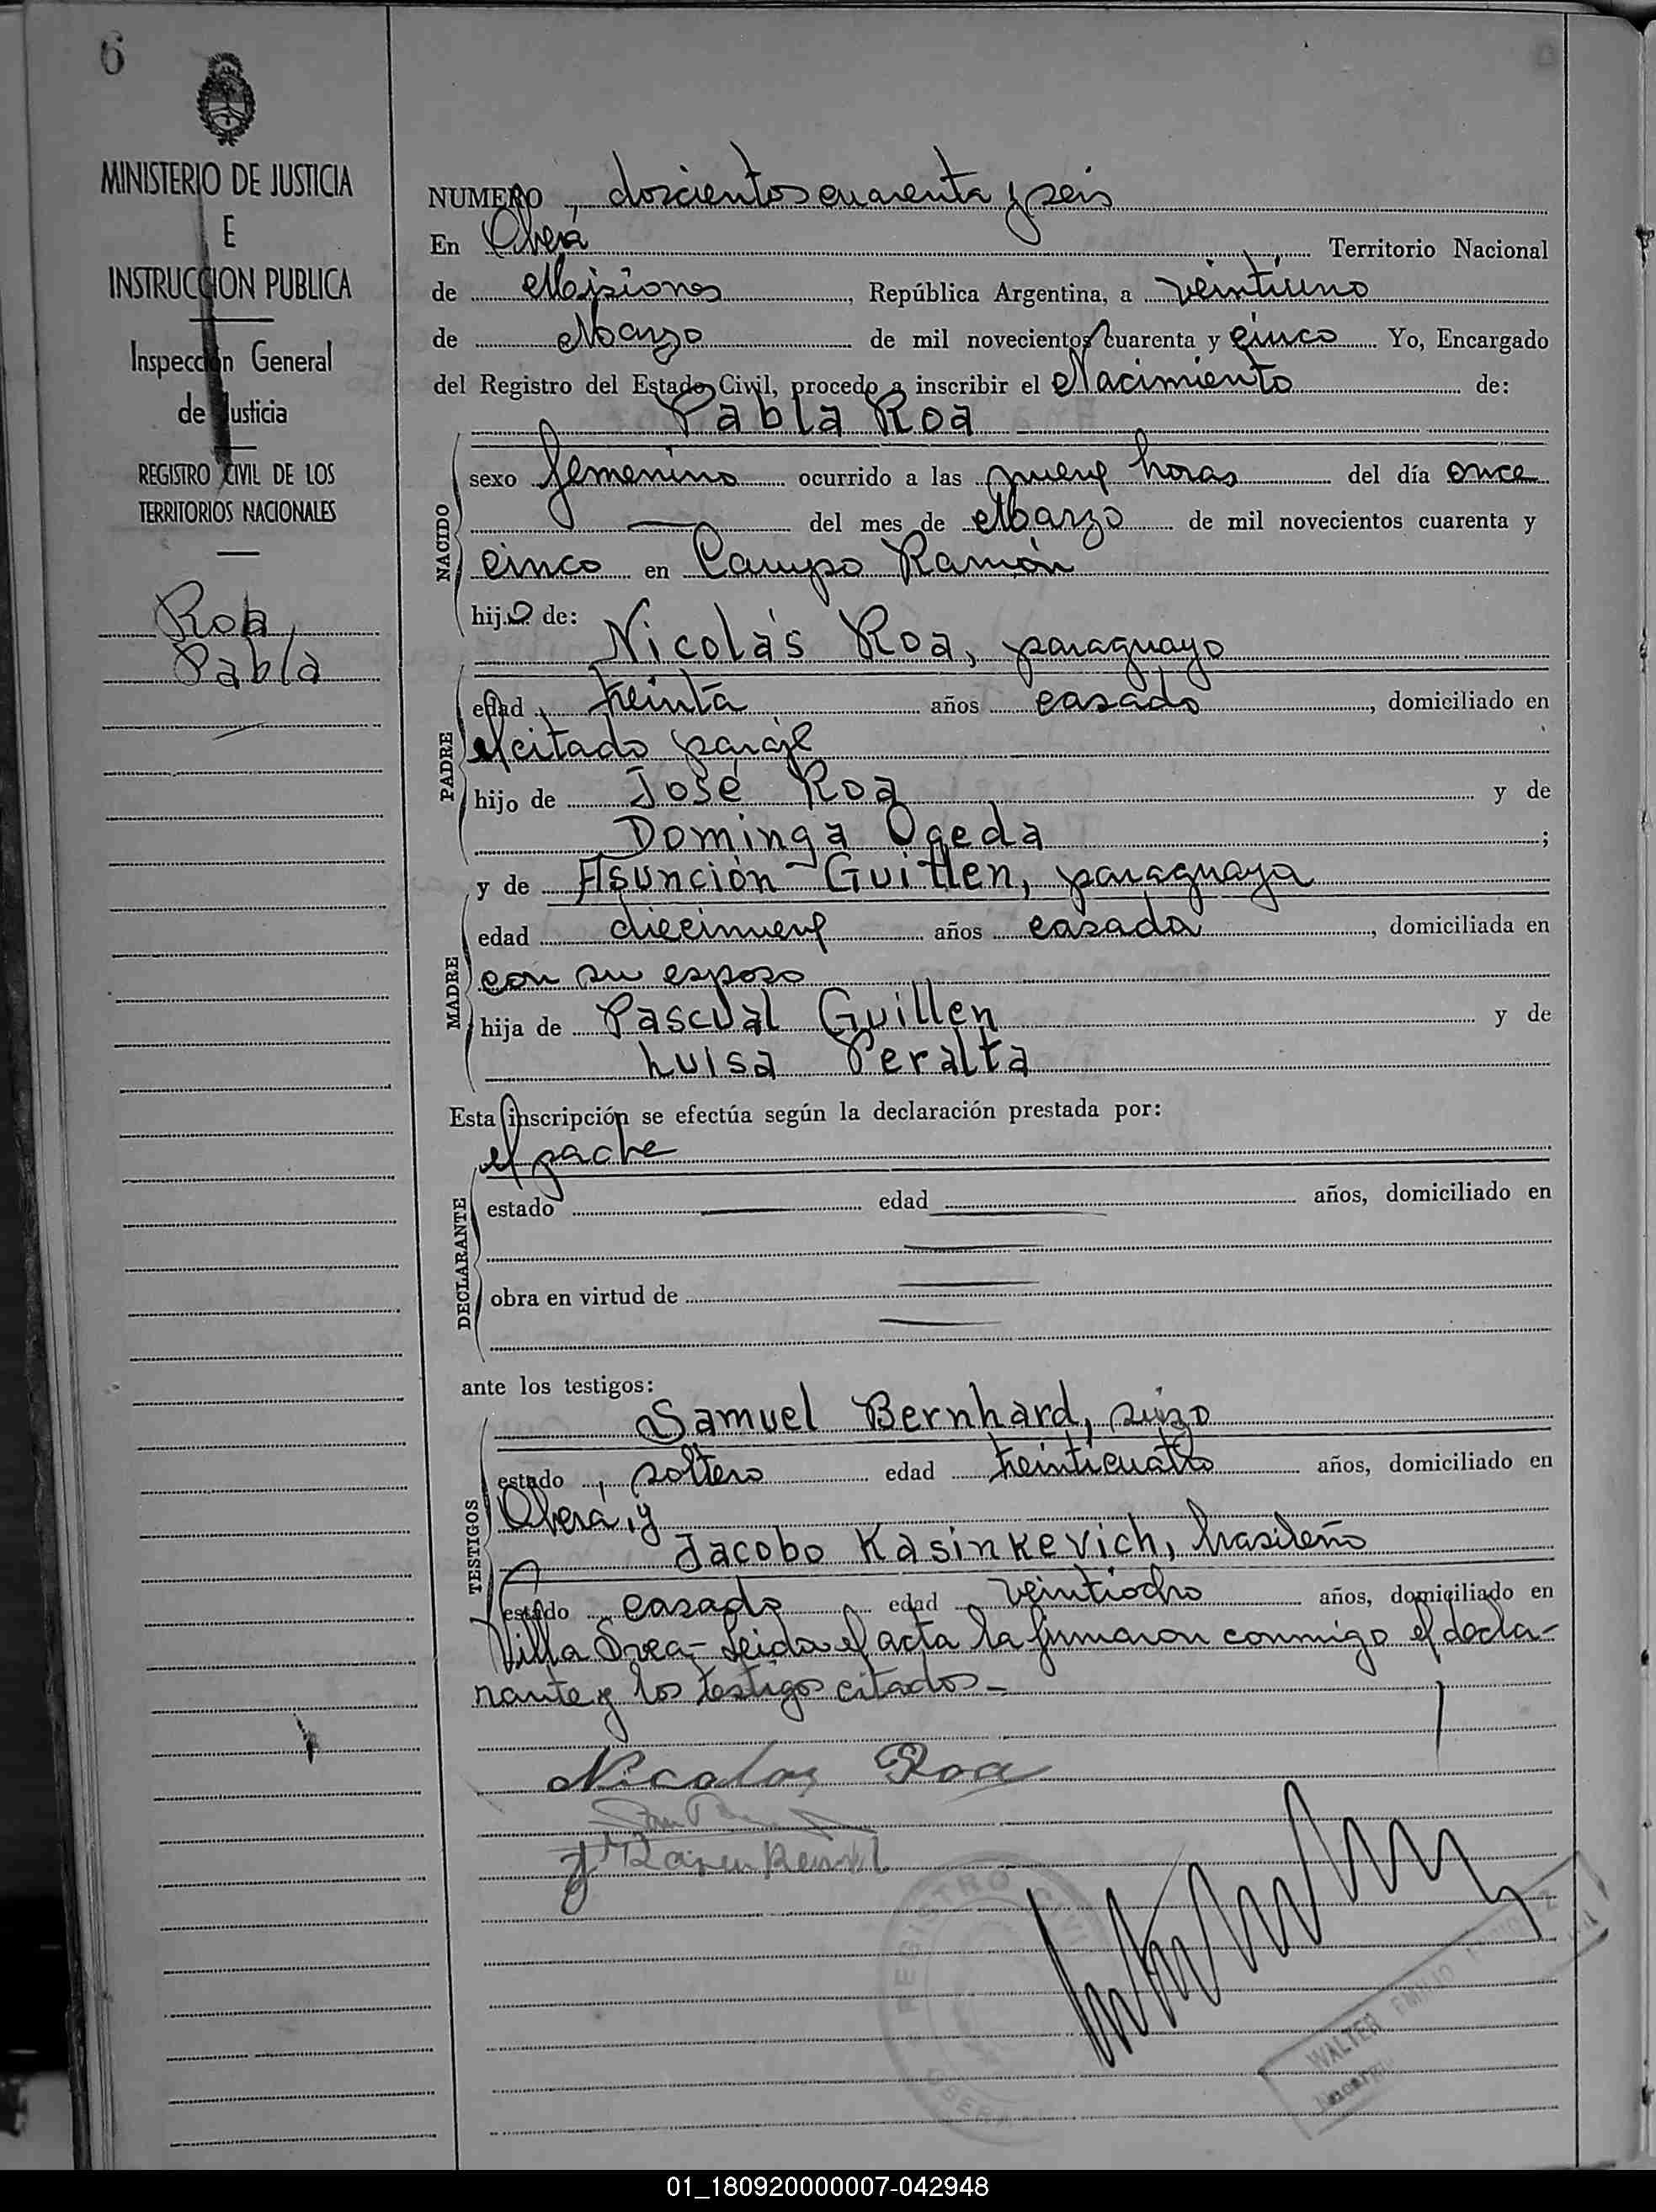 6
MINISTERIO DE JUSTICIA
E
INSTRUCCION PUBLICA
Inspección General
de Justicia
REGISTRO CIVIL DE LOS
TERRITORIOS NACIONALES
Roa,
Pabla
NUMERO, doscientos cuarenta y seis
En Oberá Territorio Nacional
de Misiones, República Argentina, a veintiuno
de Marzo de mil novecientos cuarenta y cinco Yo, Encargado
del Registro del Estado Civil, procedo a inscribir el Nacimiento de:
Pabla Roa
NACIDO
sexo femenino ocurrido a las nueve horas del día once
del mes de Marzo de mil novecientos cuarenta y
cinco en Campo Ramón
hija de:
Nicolás Roa, paraguayo
PADRE
edad, treinta años casado, domiciliado en
el citado paraje
hijo de José Roa y de
Dominga Ogeda;
y de Asunción Guillen, paraguaya
MADRE
edad diecinueve años casada, domiciliada en
con su esposo
hija de Pascual Guillen y de
Luisa Peralta
Esta inscripción se efectúa según la declaración prestada por:
el padre
DECLARANTE
estado edad años, domiciliado en
obra en virtud de
ante los testigos:
TESTIGOS
Samuel Bernhard, suizo
estado, soltero edad treinticuatro años, domiciliado en
Oberá, y
Jacobo Kasinkevich, brasileño
estado casado edad veintiocho años, domiciliado en
Villa Svea- Leida el acta la firmaron conmigo el decla-
rante y los testigos citados-
Nicolas Roa
REGISTRO CIVIL
OBERA
WALTER EMILIO
01_180920000007-042948